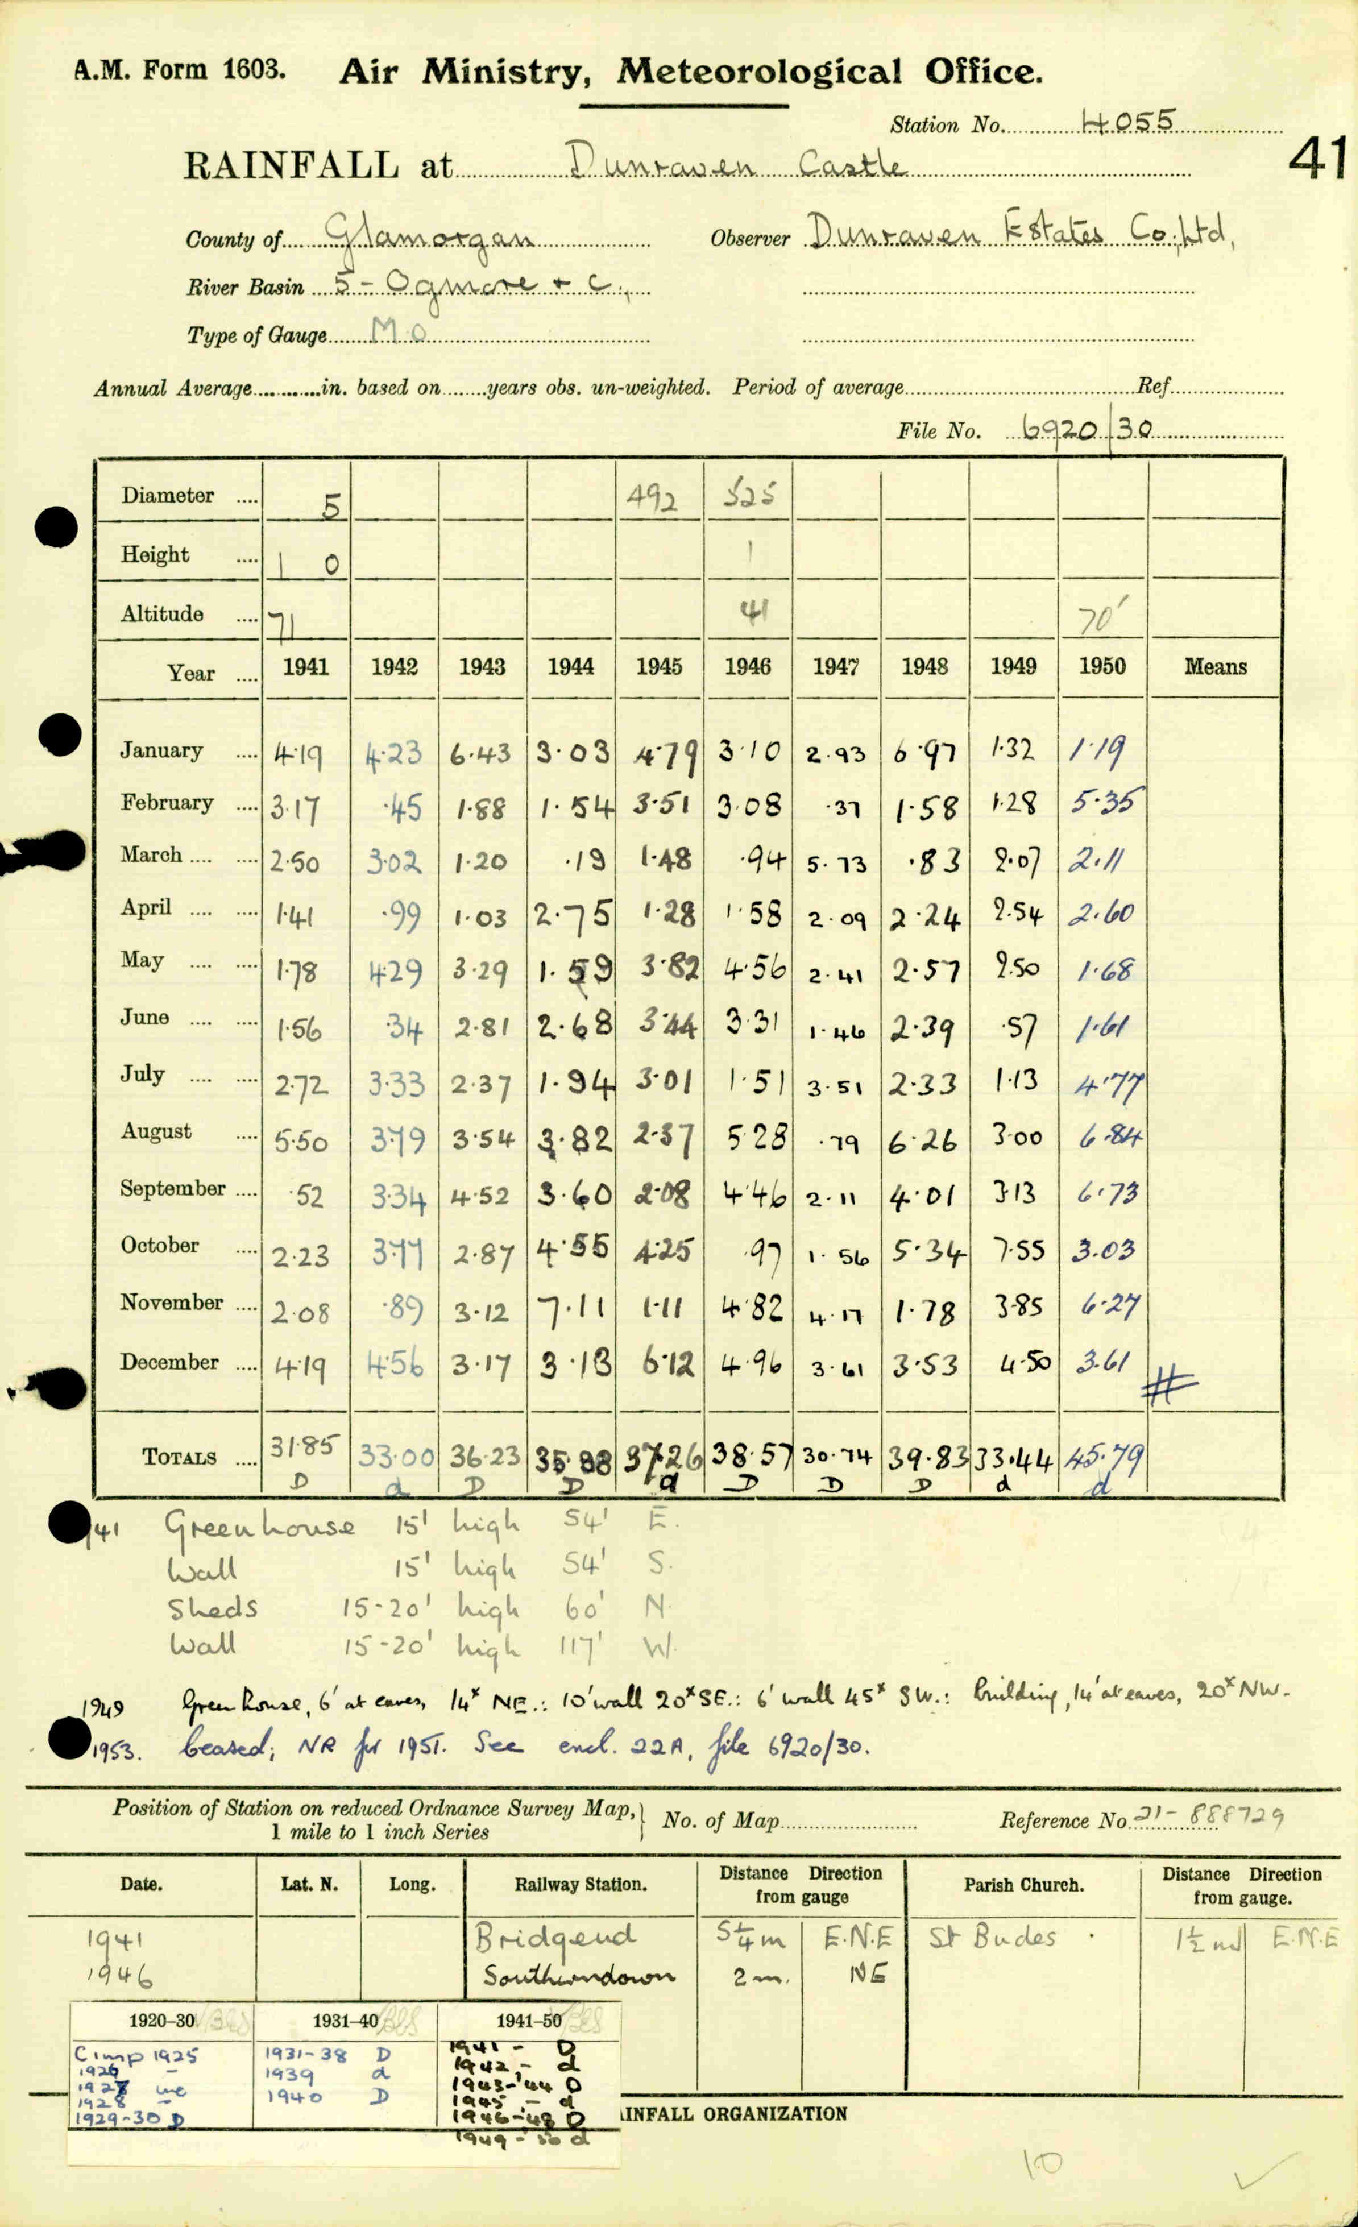 A.M. Form 1603. Air Ministry, Meteorological Office.
Station No. 4055
41
RAINFALL at Dunraven Castle
County of Glamorgan Observer Dunraven Estates Co., Ltd,
River Basin 5 - Ogmore + c.,
Type of Gauge MO
Annual Average in. based on years obs. un-weighted. Period of average Ref
File No. 6920/30
Diameter .... 5 492 525
Height .... 1 0 1
Altitude .... 71 41 70'
Year .... 1941 1942 1943 1944 1945 1946 1947 1948 1949 1950 Means
January .... 4·19 4·23 6·43 3·03 4·79 3·10 2·93 6·97 1·32 1·19
February .... 3·17 ·45 1·88 1·54 3·51 3·08 ·37 1·58 1·28 5·35
March .... .... 2·50 3·02 1·20 ·19 1·48 ·94 5·73 ·83 2·07 2·11
April .... .... 1·41 ·99 1·03 2·75 1·28 1·58 2·09 2·24 2·54 2·60
May .... .... 1·78 4·29 3·29 1·59 3·82 4·56 2·41 2·57 2·50 1·68
June .... .... 1·56 ·34 2·81 2·68 3·44 3·31 1·46 2·39 ·57 1·61
July .... .... 2·72 3·33 2·37 1·94 3·01 1·51 3·51 2·33 1·13 4·77
August .... 5·50 3·79 3·54 3·82 2·37 5·28 ·79 6·26 3·00 6·84
September .... ·52 3·34 4·52 3·60 2·08 4·46 2·11 4·01 3·13 6·73
October .... 2·23 3·77 2·87 4·55 4·25 ·97 1·56 5·34 7·55 3·03
November .... 2·08 ·89 3·12 7·11 1·11 4·82 4·17 1·78 3·85 6·27
December .... 4·19 4·56 3·17 3·18 6·12 4·96 3·61 3·53 4·50 3·61 #
TOTALS .... 31·85 33·00 36·23 35·98 37·26 38·57 30·74 39·83 33·44 45·79
D d D D d D D D d d
1941 Greenhouse 15' high 54' E.
Wall 15' high 54' S.
Sheds 15-20' high 60' N.
Wall 15-20' high 117' W.
1949 Greenhouse, 6' at eaves, 14ˣ NE.: 10' wall 20ˣ SE.: 6' wall 45ˣ SW.: building, 14' at eaves, 20ˣ NW.
1953. Ceased; NR for 1951. See encl. 22A, file 6920/30.
Position of Station on reduced Ordnance Survey Map, 1 mile to 1 inch Series } No. of Map Reference No 21- 888729
Date. Lat. N. Long. Railway Station. Distance Direction from gauge Parish Church. Distance Direction from gauge.
1941 Bridgend 5¼m E.N.E St Brides 1½ml E.N.E
1946 Southerndown 2m. NE
1920-30 1931-40 1941-50
Cimp 1925 1931-38 D 1941 - D
1926 - 1939 d 1942 - d
1927 inc 1940 D 1943-'44 D
1928 - 1945 - d
1929-30 D 1946-'48 D
1949-'50 d
AINFALL ORGANIZATION
10